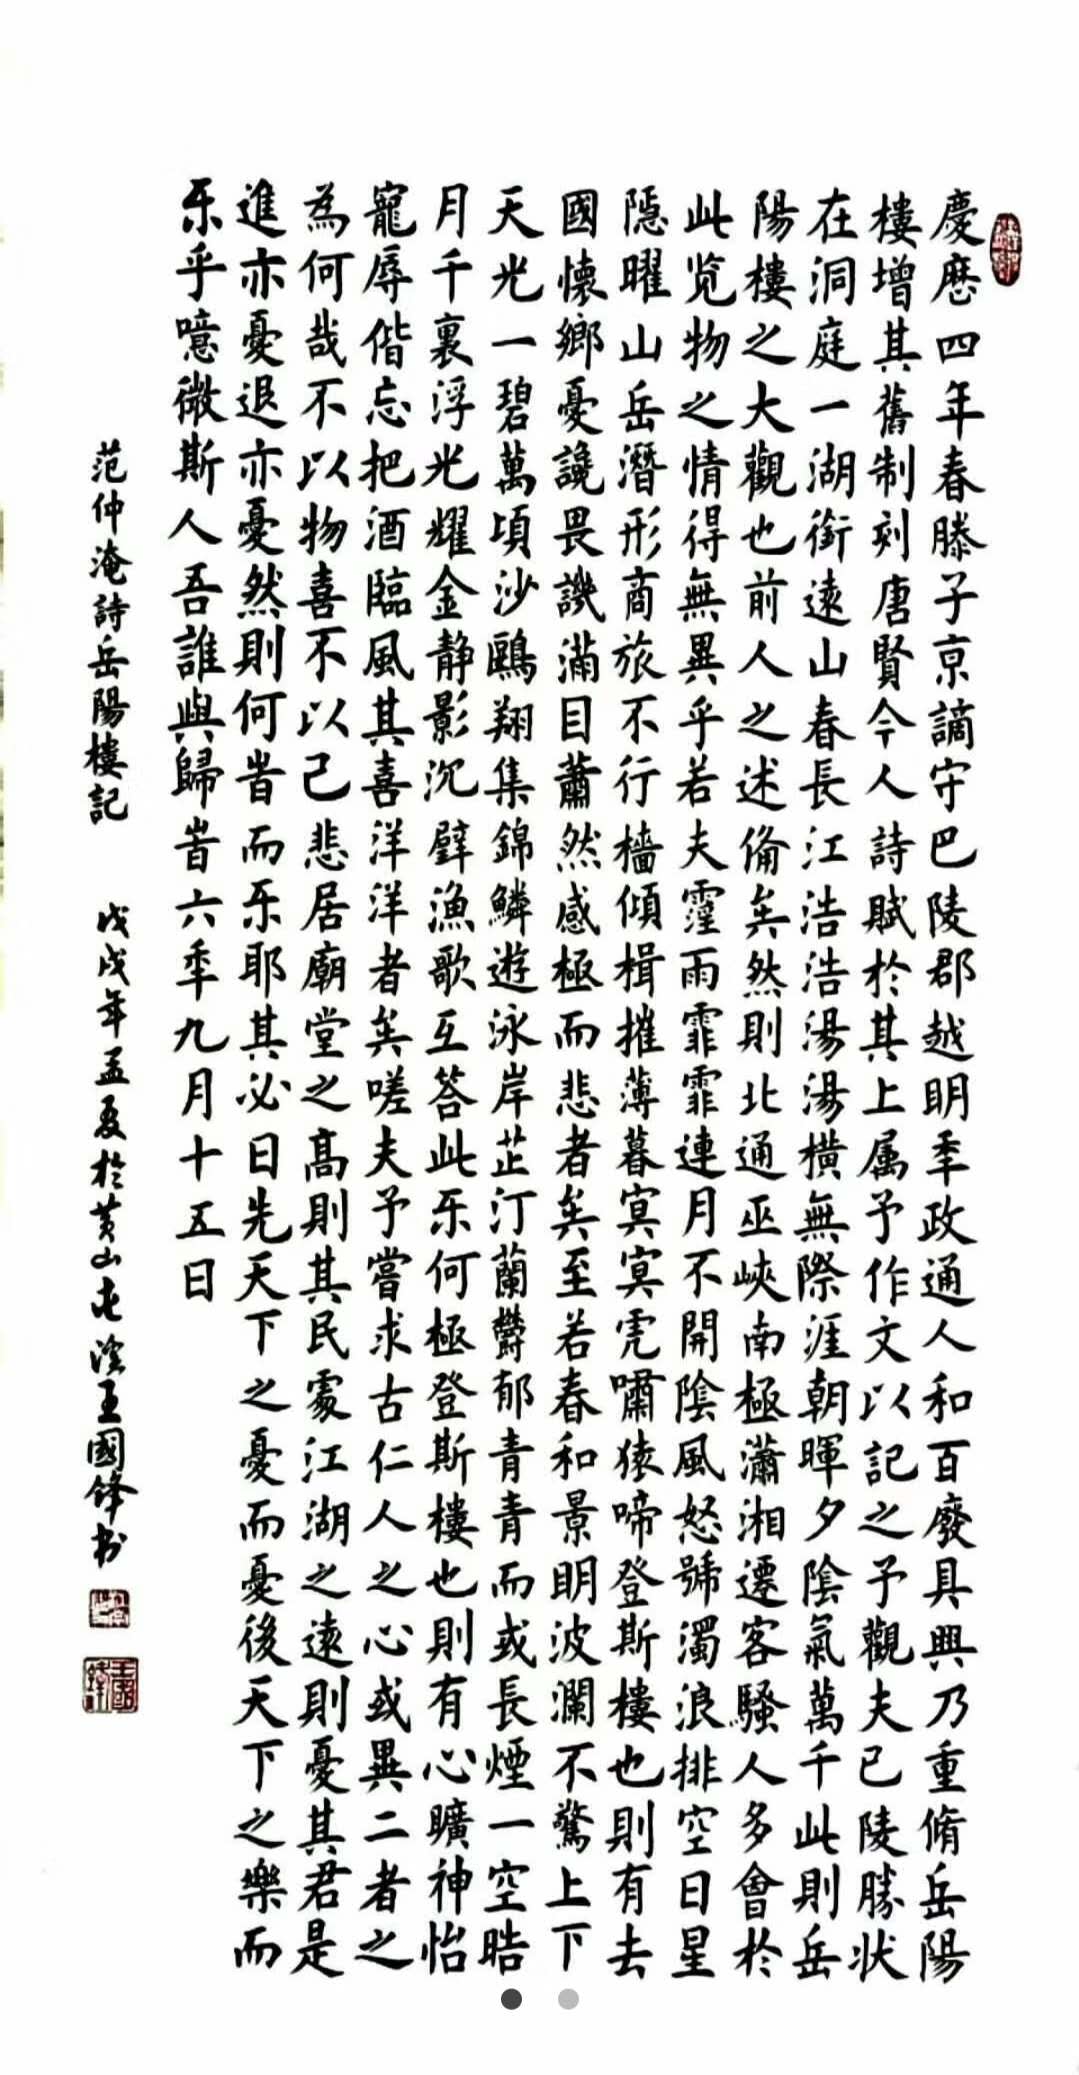 慶厯四年春滕子京謫守巴陵郡越眀季政通人和百廢具興乃重脩岳陽
樓增其舊制刻唐賢今人詩賦於其上属予作文以記之予觀夫巴陵勝状
在洞庭一湖銜遠山春長江浩浩湯湯橫無際涯朝暉夕陰氣萬千此則岳
陽樓之大觀也前人之述俻矣然則北通巫峽南極瀟湘遷客騷人多會於
此览物之情得無異乎若夫霪雨霏霏連月不開陰風怒號濁浪排空日星
隱曜山岳潛形商旅不行檣傾楫摧薄暮冥冥虎嘯猿啼登斯樓也則有去
國懷鄉憂讒畏譏滿目蕭然感極而悲者矣至若春和景眀波瀾不驚上下
天光一碧萬頃沙鷗翔集錦鱗遊泳岸芷汀蘭欝郁青青而或長煙一空皓
月千裏浮光耀金静影沉璧漁歌互答此乐何極登斯樓也則有心曠神怡
寵辱偕忘把酒臨風其喜洋洋者矣嗟夫予嘗求古仁人之心或異二者之
為何哉不以物喜不以己悲居廟堂之高則其民處江湖之遠則憂其君是
進亦憂退亦憂然則何旹而乐耶其必曰先天下之憂而憂後天下之樂而
乐乎噫微斯人吾誰與歸旹六季九月十五日
范仲淹詩岳陽樓記 戊戌年孟夏於黄山屯溪王國鋒书